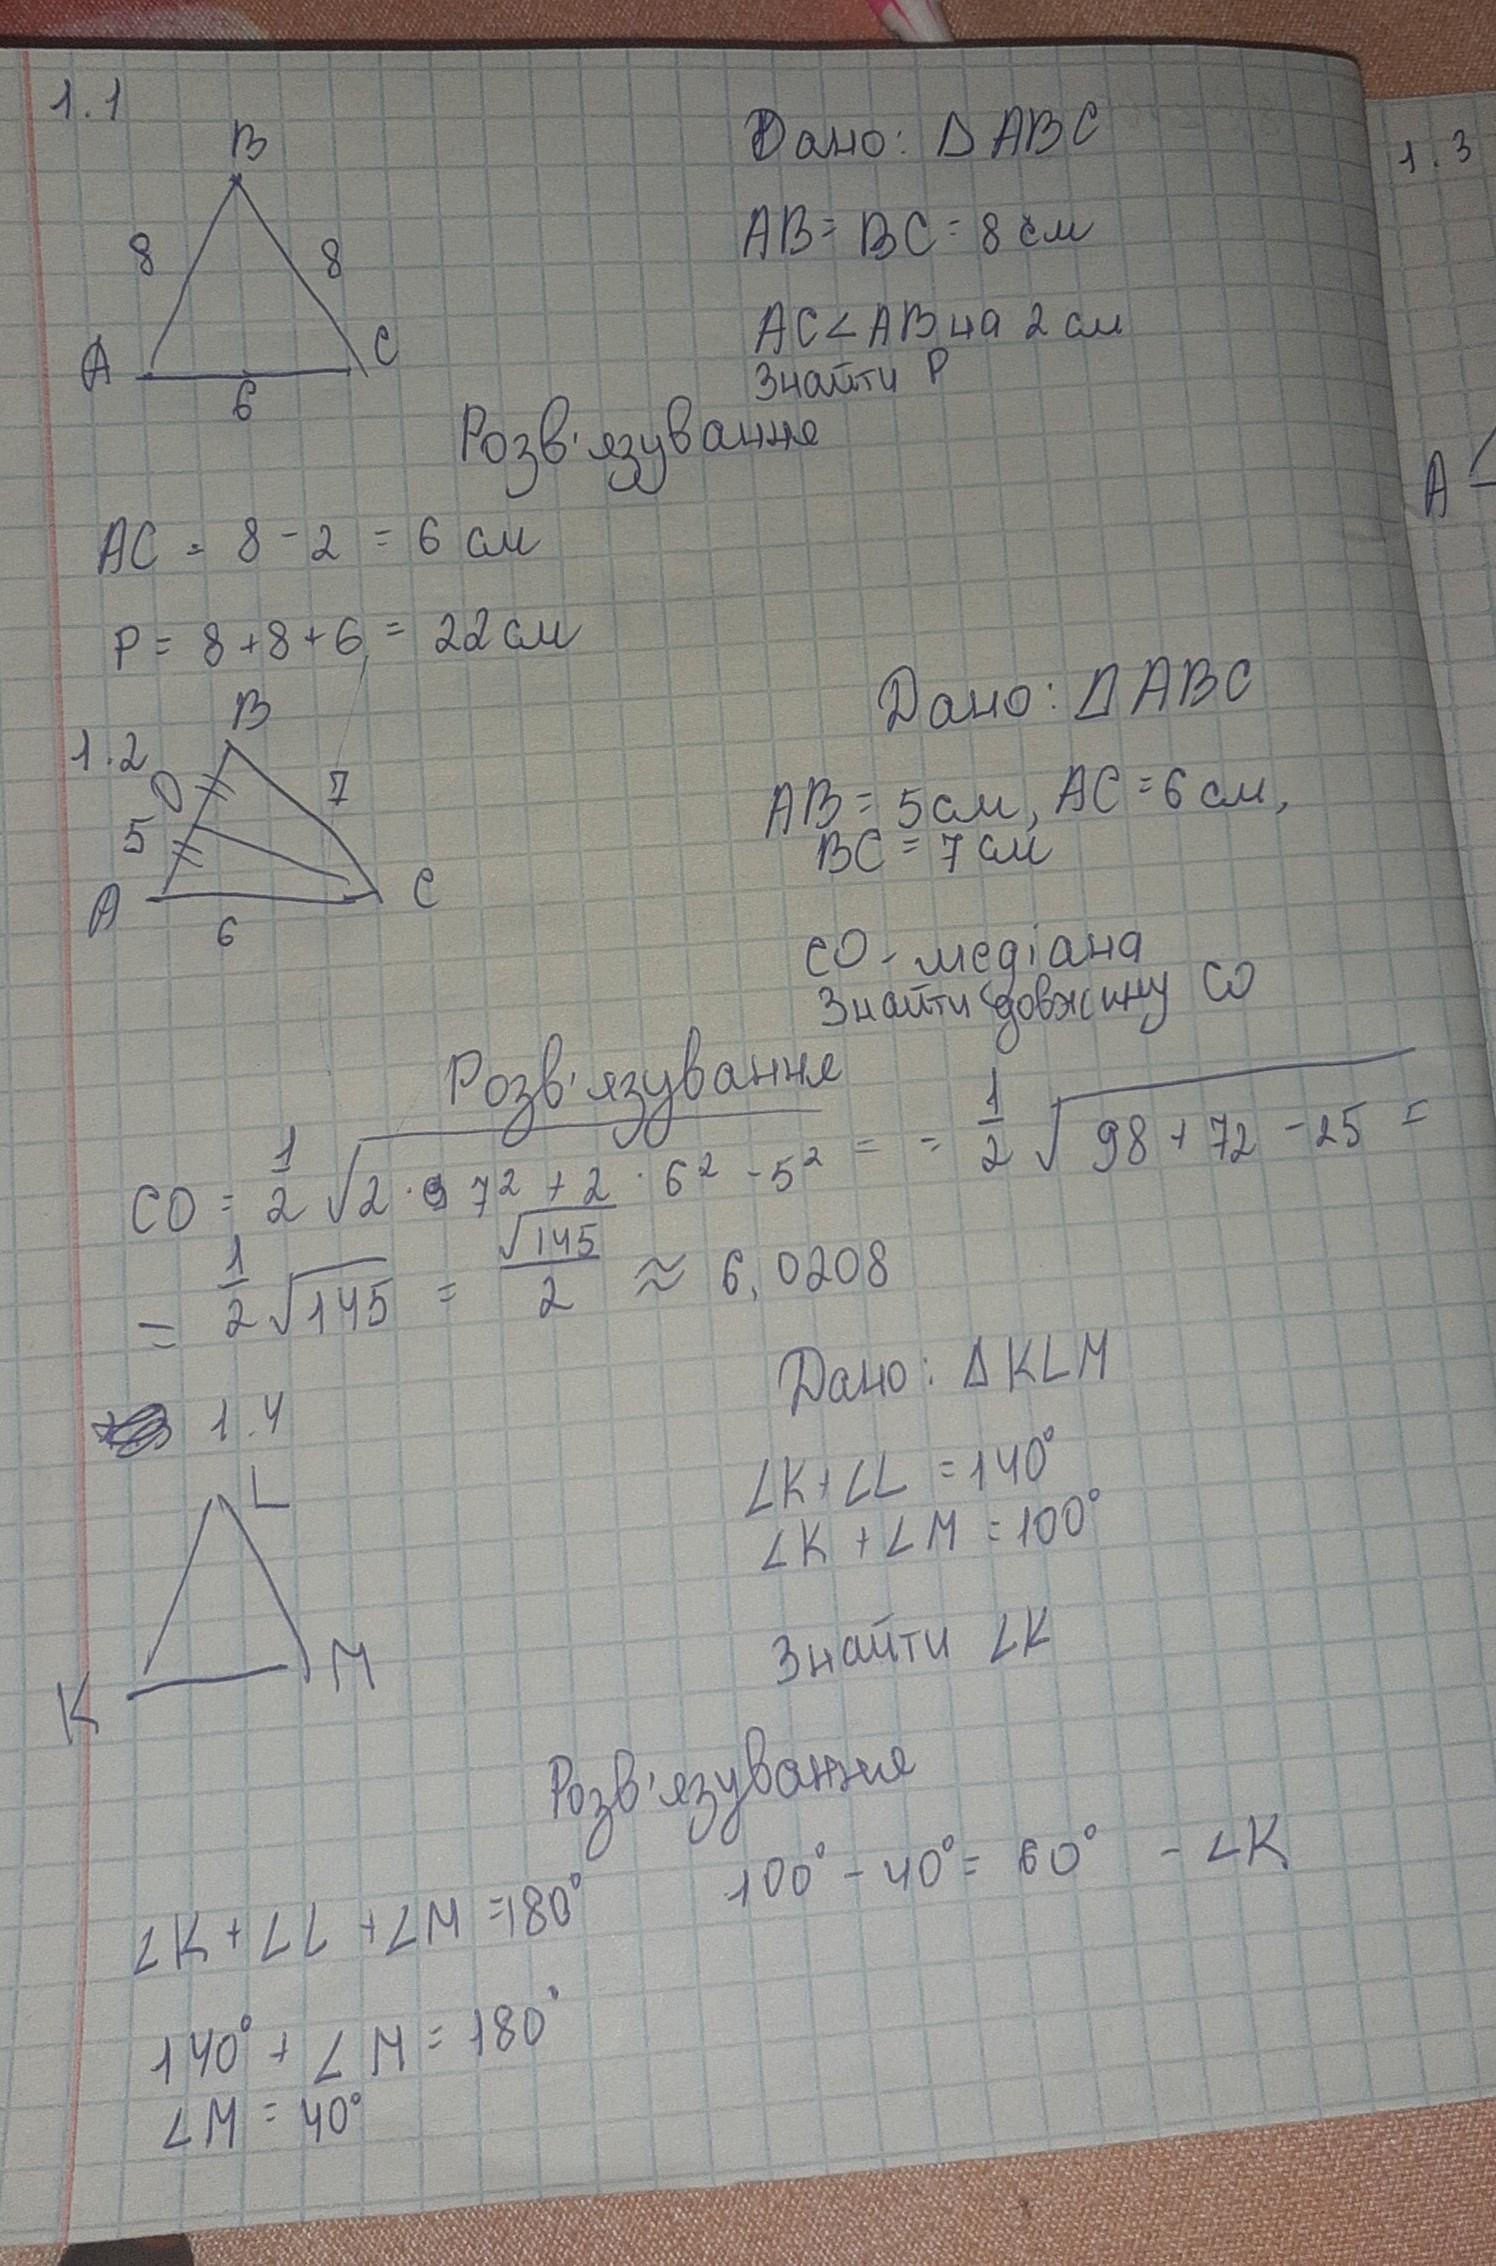 1.1
B
Дано: Δ ABC
8
8
AB = BC = 8 см
A
C
6
AC < AB на 2 см
Знайти P
Розв'язування
AC = 8 - 2 = 6 см
P = 8 + 8 + 6 = 22 см
1.2
B
Дано: Δ ABC
O
7
5
AB = 5 см, AC = 6 см,
BC = 7 см
A
C
6
CO - медіана
Знайти довжину CO
Розв'язування
CO = 1/2 √(2 · 7² + 2 · 6² - 5²) = = 1/2 √(98 + 72 - 25) =
= 1/2 √145 = √145/2 ≈ 6,0208
1.4
Дано: Δ KLM
L
∠K + ∠L = 140°
∠K + ∠M = 100°
K
M
Знайти ∠K
Розв'язування
∠K + ∠L + ∠M = 180°
100° - 40° = 60° - ∠K
140° + ∠M = 180°
∠M = 40°
1.3
A